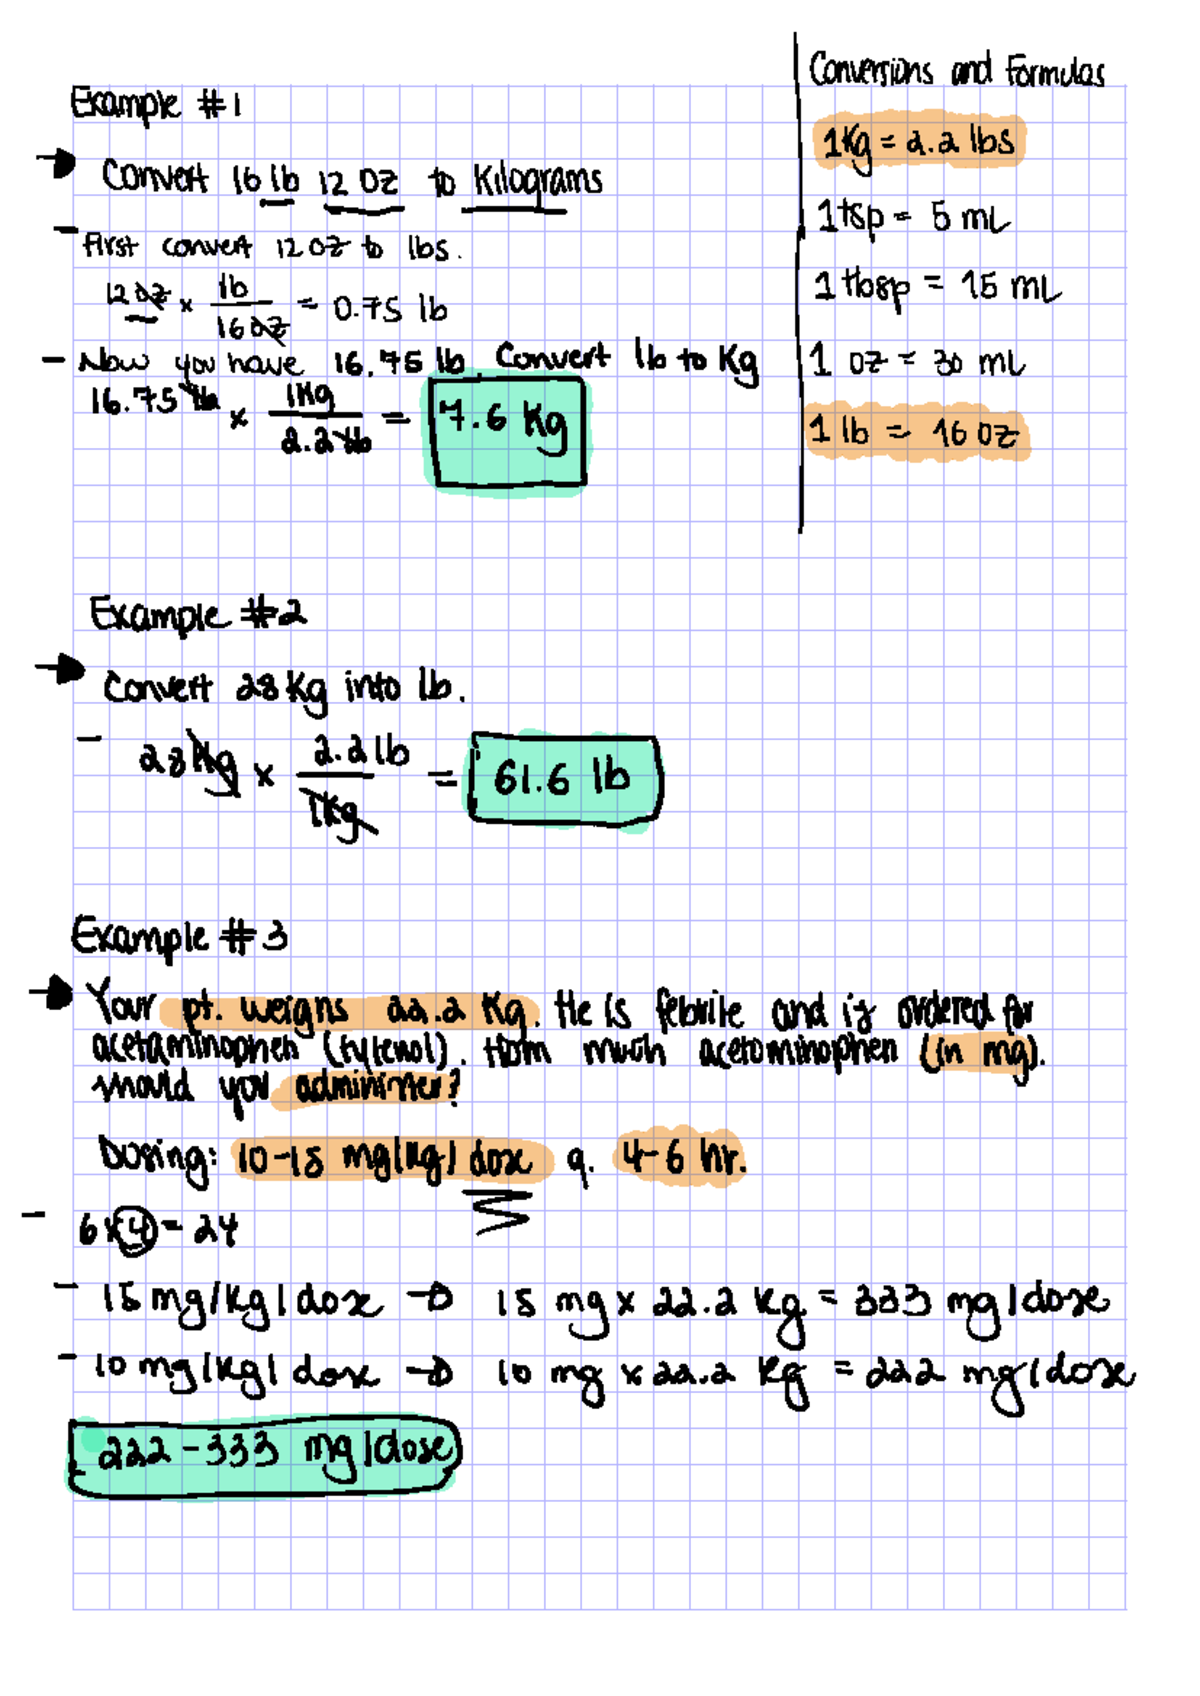 Conversions and Formulas
1Kg = 2.2 lbs
1tsp = 5 mL
1 tbsp = 15 mL
1 oz = 30 mL
1 lb = 16 oz
Example #1
Convert 16 lb 12 oz to Kilograms
- First convert 12 oz to lbs.
12 oz x lb / 16 oz = 0.75 lb
- Now you have 16.75 lb. Convert lb to Kg
16.75 lb x 1Kg / 2.2 lb = 7.6 Kg
Example #2
Convert 28 Kg into lb.
- 28 Kg x 2.2 lb / 1kg = 61.6 lb
Example #3
Your pt. weighs 22.2 Kg. He is febrile and is ordered for
acetaminophen (tylenol). How much acetaminophen (in mg).
should you administer?
Dosing: 10-15 mg/kg/dose q. 4-6 hr.
- 6 x 4 = 24
- 15 mg/kg/dose → 15 mg x 22.2 kg = 333 mg/dose
- 10 mg/kg/dose → 10 mg x 22.2 kg = 222 mg/dose
222-333 mg/dose